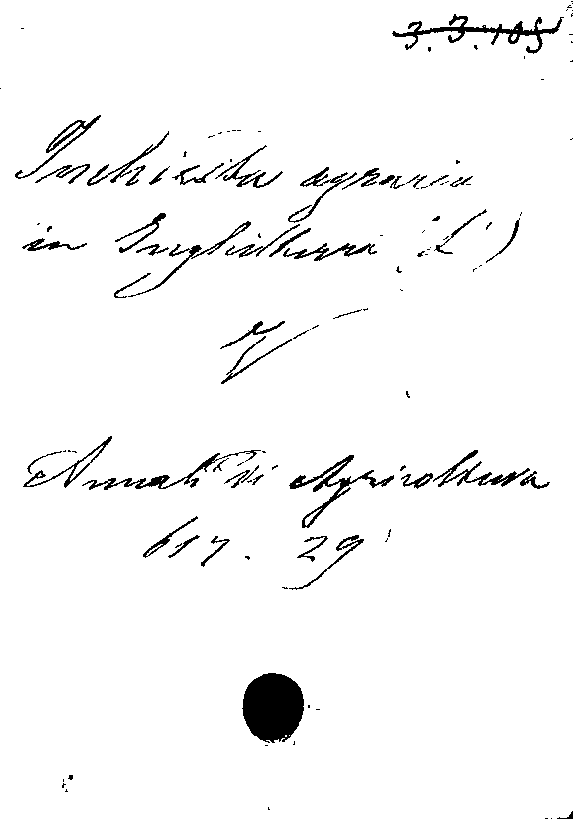 3.3.105
Inchiesta agraria
in Inghilterra (L')
V
Annali di Agricoltura
617. 29